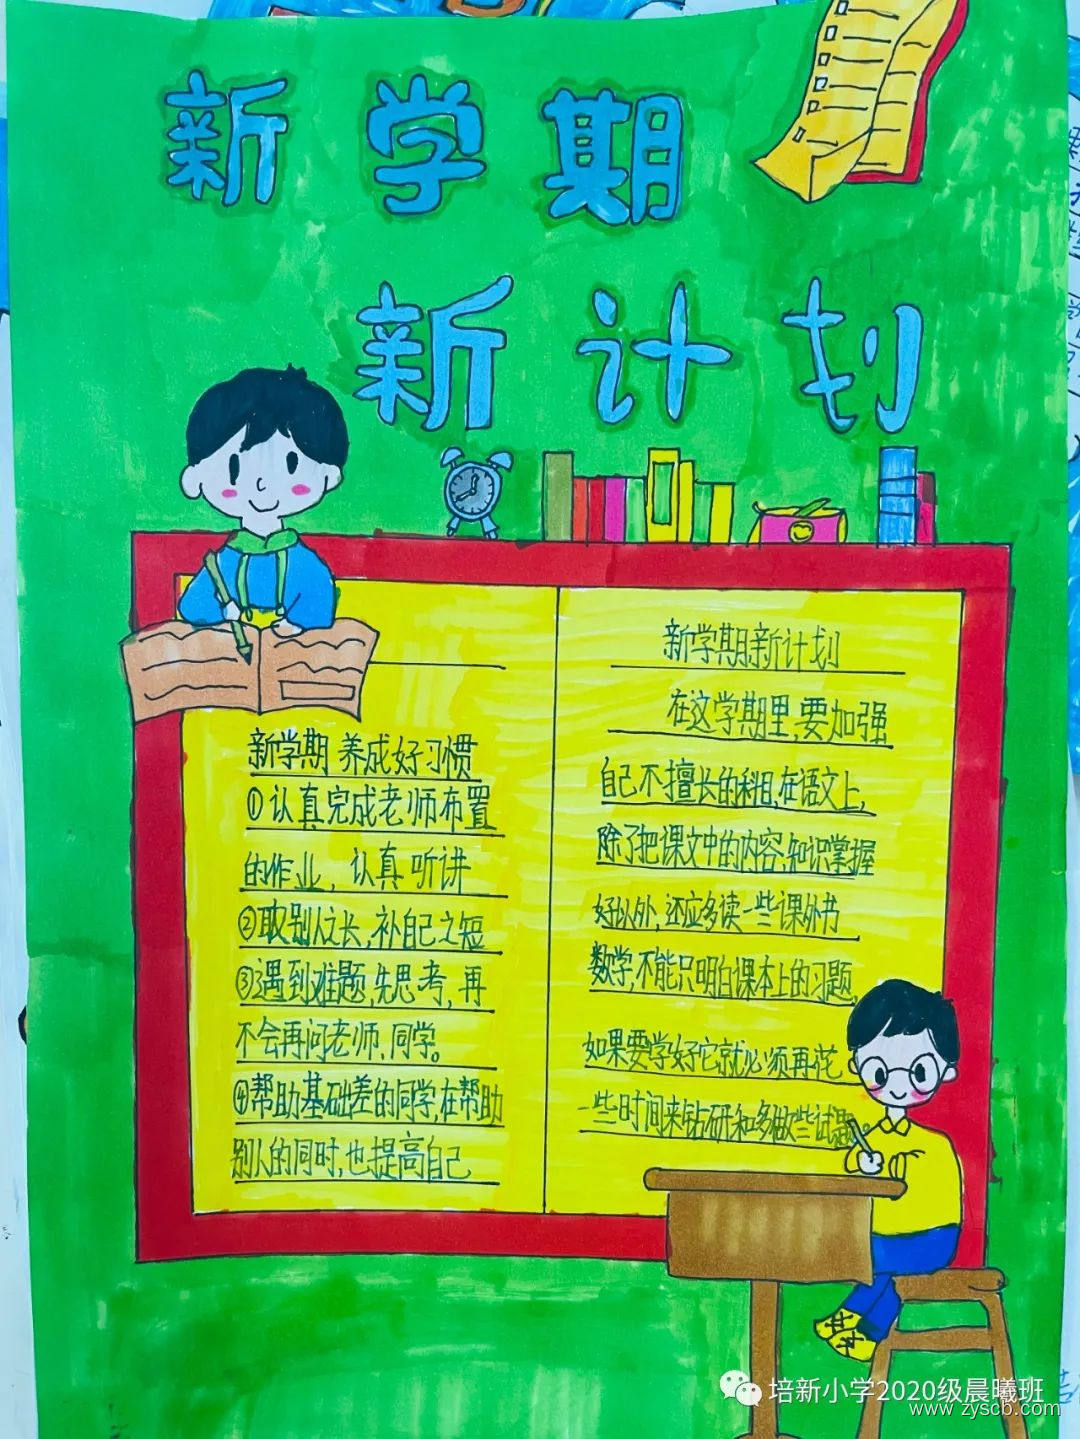 新学期
新计划
新学期 养成好习惯
①认真完成老师布置
的作业，认真听讲
②取别人之长,补自己之短
③遇到难题,先思考,再
不会再问老师,同学。
④帮助基础差的同学,在帮助
别人的同时,也提高自己
新学期新计划
在这学期里,要加强
自己不擅长的科目,在语文上,
除了把课文中的内容,知识掌握
好以外,还应多读一些课外书
数学,不能只明白课本上的习题,
如果要学好它,就必须再花
一些时间来钻研和多做些试题
培新小学2020级晨曦班
www.zyscb.com